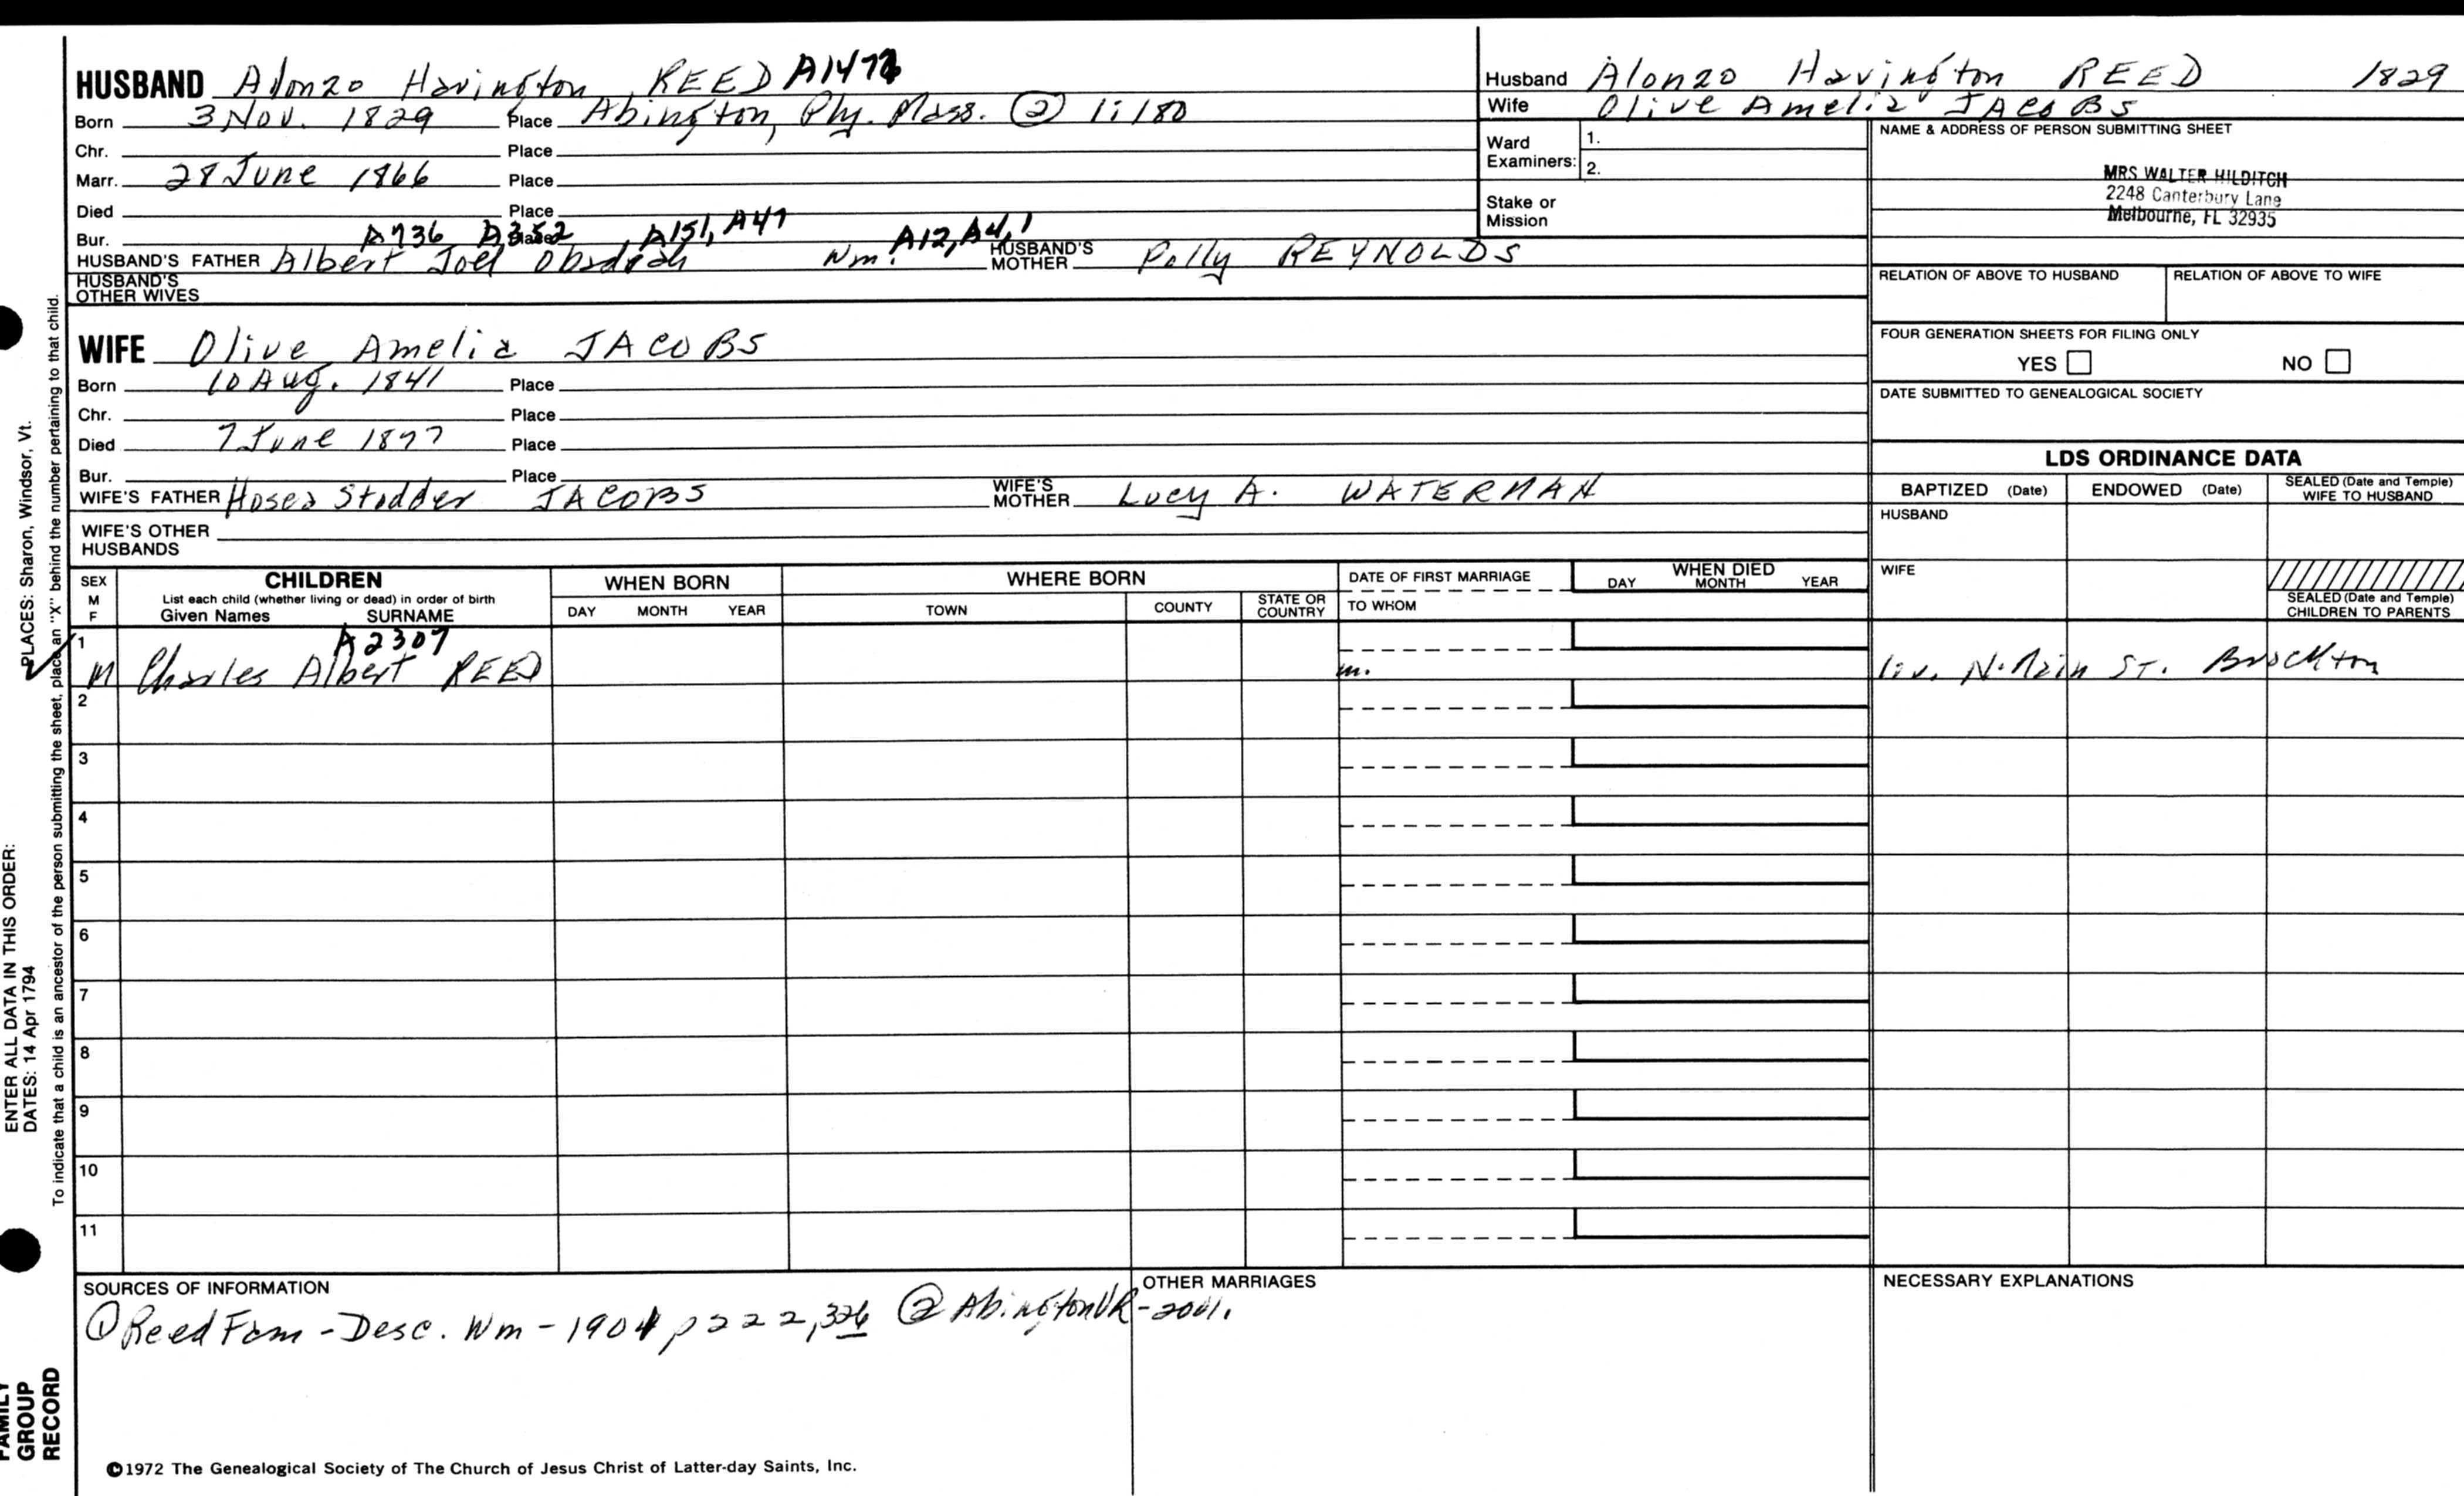 HUSBAND Alonzo Havington REED A1472
Born 3 Nov. 1829 Place Abington, Ply. Mass. ② 1:180
Chr. Place
Marr. 28 June 1866 Place
Died Place
Bur. Place
A736 A352 A151, A47 A12, A4, 1
HUSBAND'S FATHER Albert Joel Obadiah Wm. HUSBAND'S MOTHER Polly REYNOLDS
HUSBAND'S OTHER WIVES
WIFE Olive Amelia JACOBS
Born 10 Aug. 1841 Place
Chr. Place
Died 7 June 1877 Place
Bur. Place
WIFE'S FATHER Hosea Stodder JACOBS WIFE'S MOTHER Lucy A. WATERMAN
WIFE'S OTHER HUSBANDS
Husband Alonzo Havington REED 1829
Wife Olive Amelia JACOBS
Ward Examiners: 1.
2.
Stake or Mission
NAME & ADDRESS OF PERSON SUBMITTING SHEET
MRS WALTER HILDITCH
2248 Canterbury Lane
Melbourne, FL 32935
RELATION OF ABOVE TO HUSBAND RELATION OF ABOVE TO WIFE
FOUR GENERATION SHEETS FOR FILING ONLY
YES NO
DATE SUBMITTED TO GENEALOGICAL SOCIETY
LDS ORDINANCE DATA
BAPTIZED (Date) ENDOWED (Date) SEALED (Date and Temple) WIFE TO HUSBAND
HUSBAND
WIFE
SEALED (Date and Temple) CHILDREN TO PARENTS
SEX M F
CHILDREN
List each child (whether living or dead) in order of birth
Given Names SURNAME
WHEN BORN
DAY MONTH YEAR
WHERE BORN
TOWN COUNTY STATE OR COUNTRY
DATE OF FIRST MARRIAGE
TO WHOM
WHEN DIED
DAY MONTH YEAR
1 A2307
M Charles Albert REED m. liv. N. Main St. Brockton
2
3
4
5
6
7
8
9
10
11
SOURCES OF INFORMATION
① Reed Fam - Desc. Wm - 1901 p 222, 326 ② Abington VR - 2001.
OTHER MARRIAGES
NECESSARY EXPLANATIONS
©1972 The Genealogical Society of The Church of Jesus Christ of Latter-day Saints, Inc.
ENTER ALL DATA IN THIS ORDER:
DATES: 14 Apr 1794 PLACES: Sharon, Windsor, Vt.
To indicate that a child is an ancestor of the person submitting the sheet, place an "X" behind the number pertaining to that child.
FAMILY
GROUP
RECORD